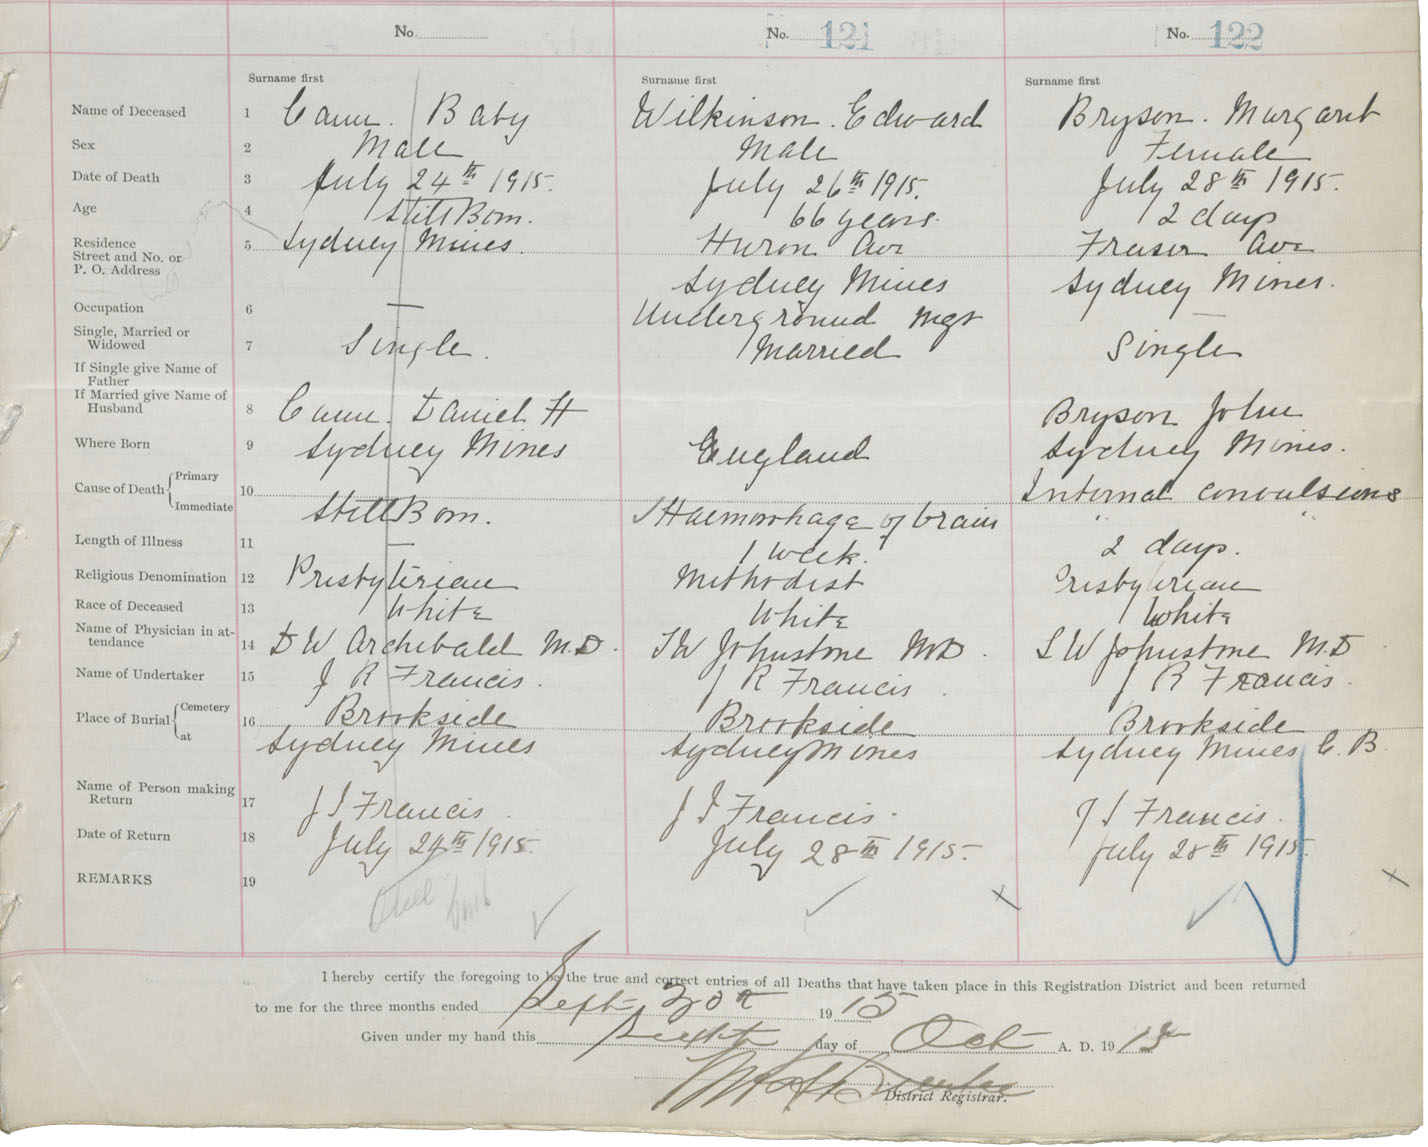 No. No. 121 No. 122
Surname first Surname first Surname first
Name of Deceased 1 Cann. Baby Wilkinson. Edward Bryson. Margaret
Sex 2 Male Male Female
Date of Death 3 July 24th 1915. July 26th 1915. July 28th 1915.
Age 4 Still Born. 66 years. 2 days
Residence Street and No. or P. O. Address 5 Sydney Mines. Huron Ave Fraser Ave
Sydney Mines Sydney Mines.
Occupation 6 — Underground Mgr —
Single, Married or Widowed 7 Single. Married Single
If Single give Name of Father
If Married give Name of Husband 8 Cann. Daniel H Bryson John
Where Born 9 Sydney Mines England Sydney Mines.
Cause of Death { Primary 10 Internal convulsions
Immediate Still Born. Haemorrhage of brain " "
Length of Illness 11 — 1 week. 2 days.
Religious Denomination 12 Presbyterian Methodist Presbyterian
Race of Deceased 13 White White White
Name of Physician in attendance 14 D W Archibald M.D. S W Johnstone M.D. S W Johnstone M.D
Name of Undertaker 15 J R Francis. J R Francis. J R Francis.
Place of Burial { Cemetery 16 Brookside Brookside Brookside
at Sydney Mines Sydney Mines Sydney Mines C. B.
Name of Person making Return 17 J S Francis. J S Francis. J S Francis.
Date of Return 18 July 24th 1915. July 28th 1915. July 28th 1915.
REMARKS 19 Still born
I hereby certify the foregoing to be the true and correct entries of all Deaths that have taken place in this Registration District and been returned
to me for the three months ended Sept 30th 1915
Given under my hand this day of Oct A. D. 1915
District Registrar.